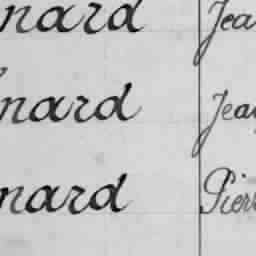 nard Jea
nard Jea
nard Pier